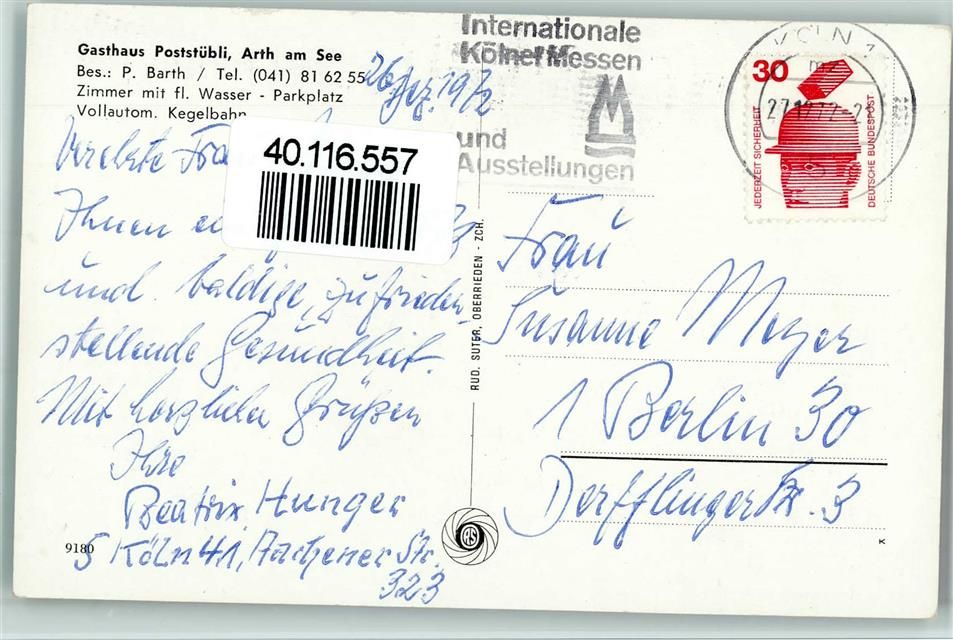 Gasthaus Poststübli, Arth am See
Bes.: P. Barth / Tel. (041) 81 62 55
Zimmer mit fl. Wasser - Parkplatz
Vollautom. Kegelbahn
26. Dez. 1972
Verehrte
40.116.557
Ihnen
und baldige, zufrieden-
stellende Gesundheit.
Mit herzlichen Grüßen
Ihre
Beatrix Hunger
5 Köln 41, Aachener Str.
323
9180
RUD. SUTER, OBERRIEDEN - ZCH.
RS
Internationale
Kölner Messen
und
Ausstellungen
KÖLN 1
27.12.72
30
JEDERZEIT SICHERHEIT
DEUTSCHE BUNDESPOST
Frau
Susanne Meyer
1 Berlin 30
Derfflinger Str. 3
K